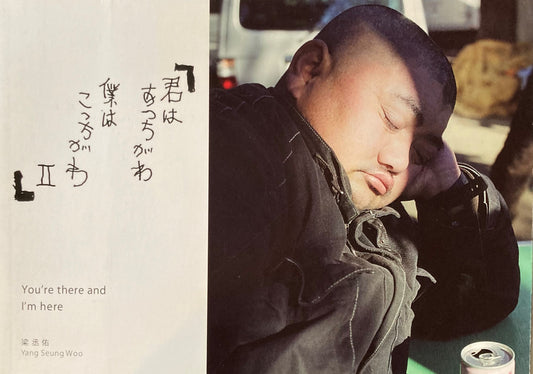 「君は
あっちがわ
僕は
こっちがわ
II」
You're there and
I'm here
梁丞佑
Yang Seung Woo